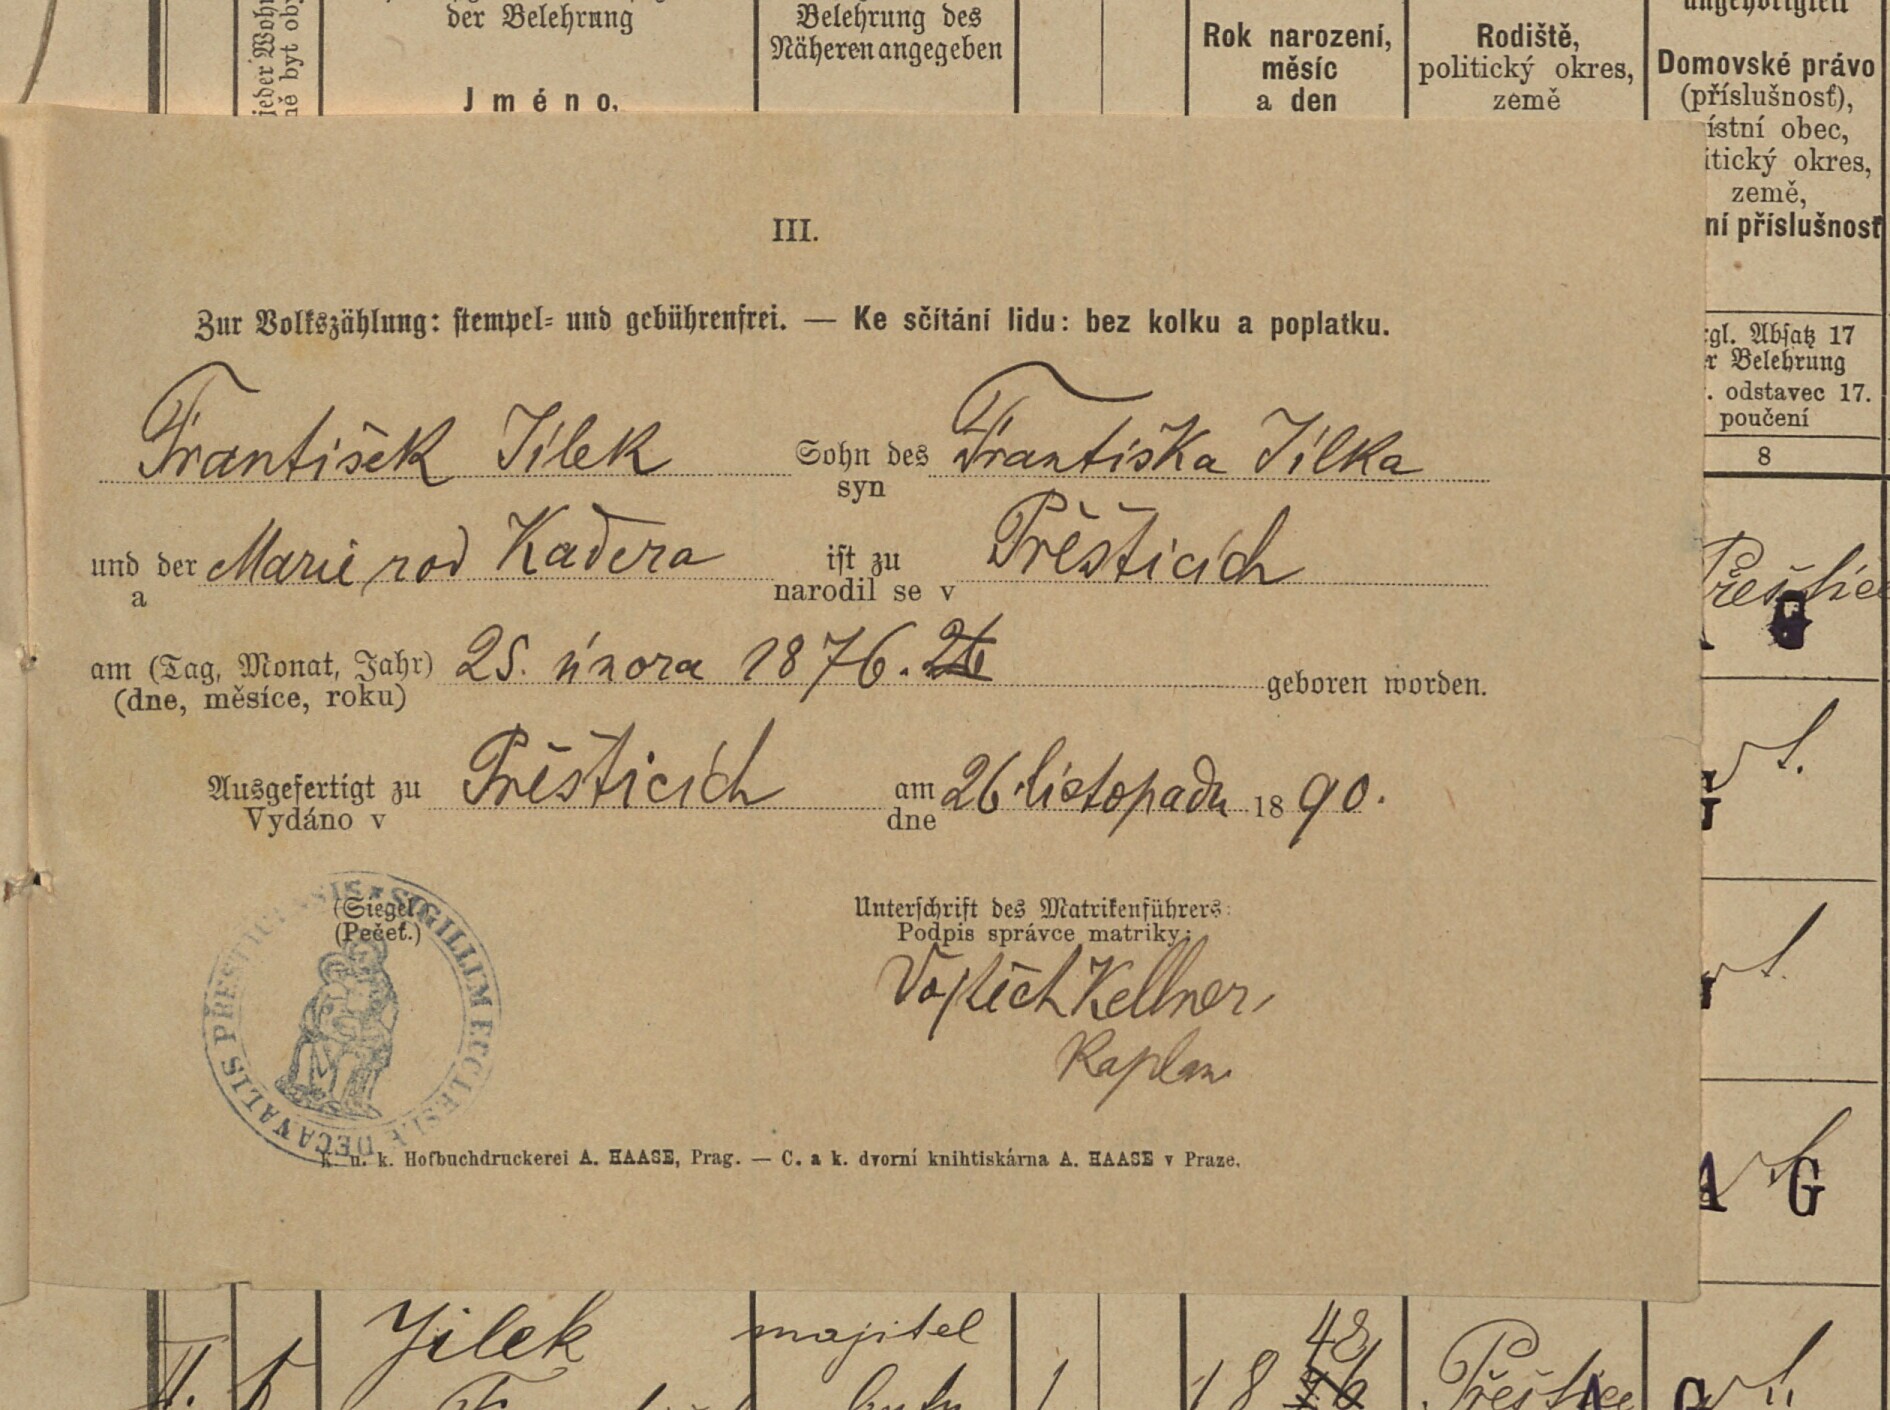 der Belehrung
Belehrung des
Näheren angegeben
Jméno,
Rok narození,
měsíc
a den
Rodiště,
politický okres,
země
Domovské právo
(příslušnosť),
ístní obec,
itický okres,
země,
ní příslušnosť
gl. Absatz 17
r Belehrung
. odstavec 17.
poučení
8
III.
Zur Volkszählung: stempel- und gebührenfrei. — Ke sčítání lidu: bez kolku a poplatku.
František Jílek Sohn des Františka Jílka
syn
und der Marie rod Kaděra ist zu Přěšticích
a narodil se v
am (Tag, Monat, Jahr) 25. února 1876. geboren worden.
(dne, měsíce, roku)
Ausgefertigt zu Přěšticích am 26 listopadu 1890.
Vydáno v dne
(Siegel.)
(Pečeť.)
SIGILLUM ECCLESIÆ DECAVALIS PŘESTICENSIS
Unterschrift des Matrikenführers:
Podpis správce matriky:
Vojtěch Kellner,
Kaplan
k. u. k. Hofbuchdruckerei A. HAASE, Prag. — C. a k. dvorní knihtiskárna A. HAASE v Praze.
Přeštice
G
A G
Jílek majitel 48
18 Přeštice
G